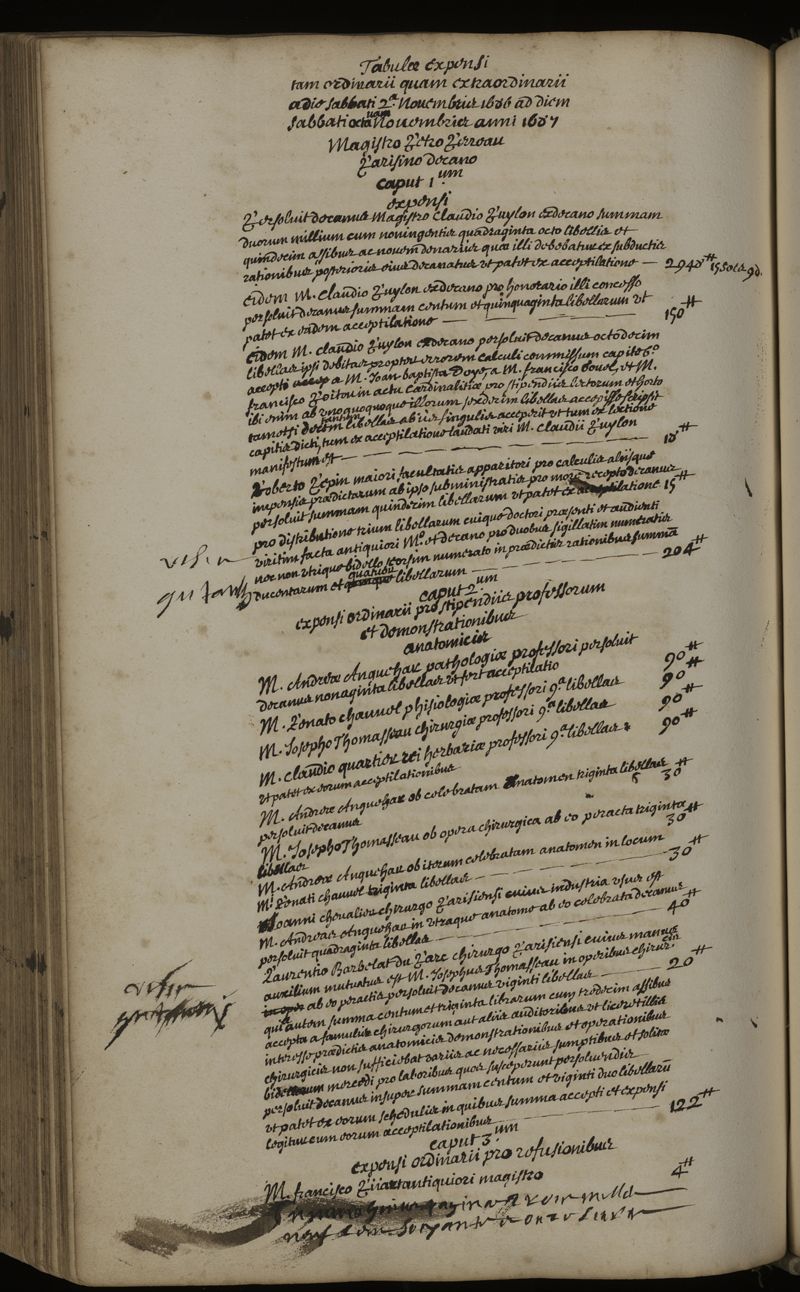 Tabulae Expensi
tam ordinarii quam extraordinarii
a die sabbati 2ª Novembris 1686 ad diem
sabbati octavam Novembris anni 1687
Magistro Petro Perreau
Parisino decano
Caput 1um
expensi
Persoluit decanus Magistro Claudio Puylon exdecano summam
duorum millium cum noningentis quadraginta octo libellis et
quindecim assibus ac novem denariis quae illi debebatur ex subductis
rationibus posterioris eius decanatus ut patet ex acceptilatione — 2948# 15 sols 9d.
Eidem M. Claudio Puylon exdecano pro honorario illi concesso
persoluit decanus summam centum et quinquaginta libellarum ut
patet ex eadem acceptilatione — 150#
Eidem M. Claudio Puylon exdecano persoluit decanus octodecim
libellas ipsi debitas propter errorem calculi commissum capite 6º
accepti a M. Joan baptista Doye, a M. francisco bouel, et M.
francisco Poitou in actu Cardinalitiae pro stipendiis lectorum et horto
ibi enim ab unoquoque illorum sexdecim libellas accepisse scripsit
tametsi decem tantum libellas ab iis singulis acceperit ut tum ex lectione
capitis dicti, tum ex acceptilatione laudati viri M. Claudii Puylon
manifestum est — 18#
Roberto Pepin maiori facultatis apparitori pro calculis aliisque
impensis praedictarum ab ipso subministratis pro more recepto decanus
persoluit summam quindecim libellarum ut patet ex acceptilatione 15#
pro distributione trium libellarum cuique doctori praesenti et audienti
viritim facta antiquiori Mº. et decano pro duobus sigillatim numeratis
nec non utrique bidello seorsim numerato in praedictis rationibus summa
ducentarum et quatuor libellarum — 204#
Caput 2um
expensi ordinarii pro stipendiis professorum
et demonstrationibus
anatomicis
M. Andreae Enguehar pathologiae professori persoluit
decanus nonaginta libellas ut fert acceptilatio 90#
M. Renato Chauvel phisiologiae professori 9ª libellas 90#
M. Josepho Thomasseau chirurgiae professori 9ª libellas 90#
M. Claudio quartier rei herbariae professori 9ª libellas 90#
ut patet ex eorum acceptilationibus
M. Andreae Enguehar ob celebratam Anatomen triginta libellas
persoluit decanus 30#
M. Josepho Thomasseau ob opera chirurgica ab eo peracta triginta
libellas 30#
M. Andreae Enguehar ob iterum celebratam anatomen in locum
M. Renati Chauvel triginta libellas — 30#
Joanni Chevalier chirurgo Parisiensi cuius industria usus est
M. Andreas Enguehar in utraque anatome ab eo celebrata decanus
persoluit quadraginta libellas — 40#
Laurentio Barbelat du Parc chirurgo Parisiensi cuius manus
auxilium mutuatus est M. Josephus Thomasseau in operibus chirurgicis
ab eo peractis persoluit decanus viginti libellas — 20#
quia autem summa centum et triginta librarum cum tredecim assibus
accepta a famulis chirurgorum aut aliis auditoribus ut liceret illis
interesse praedictis anatomicis demonstrationibus et operationibus
chirurgicis non sufficiebat variis ac necessariis sumptibus et solitae
bidellorum mercedi pro laboribus quos susceperunt persolvendis
persoluit decanus insuper summam centum et viginti duo libellarū
ut patet ex eorum schedulis in quibus summa accepti et expensi
legitur cum eorum acceptilationibus — 122#
Caput 3um
expensi ordinarii pro refusionibus
M. francisco antiquiori magistro 4#